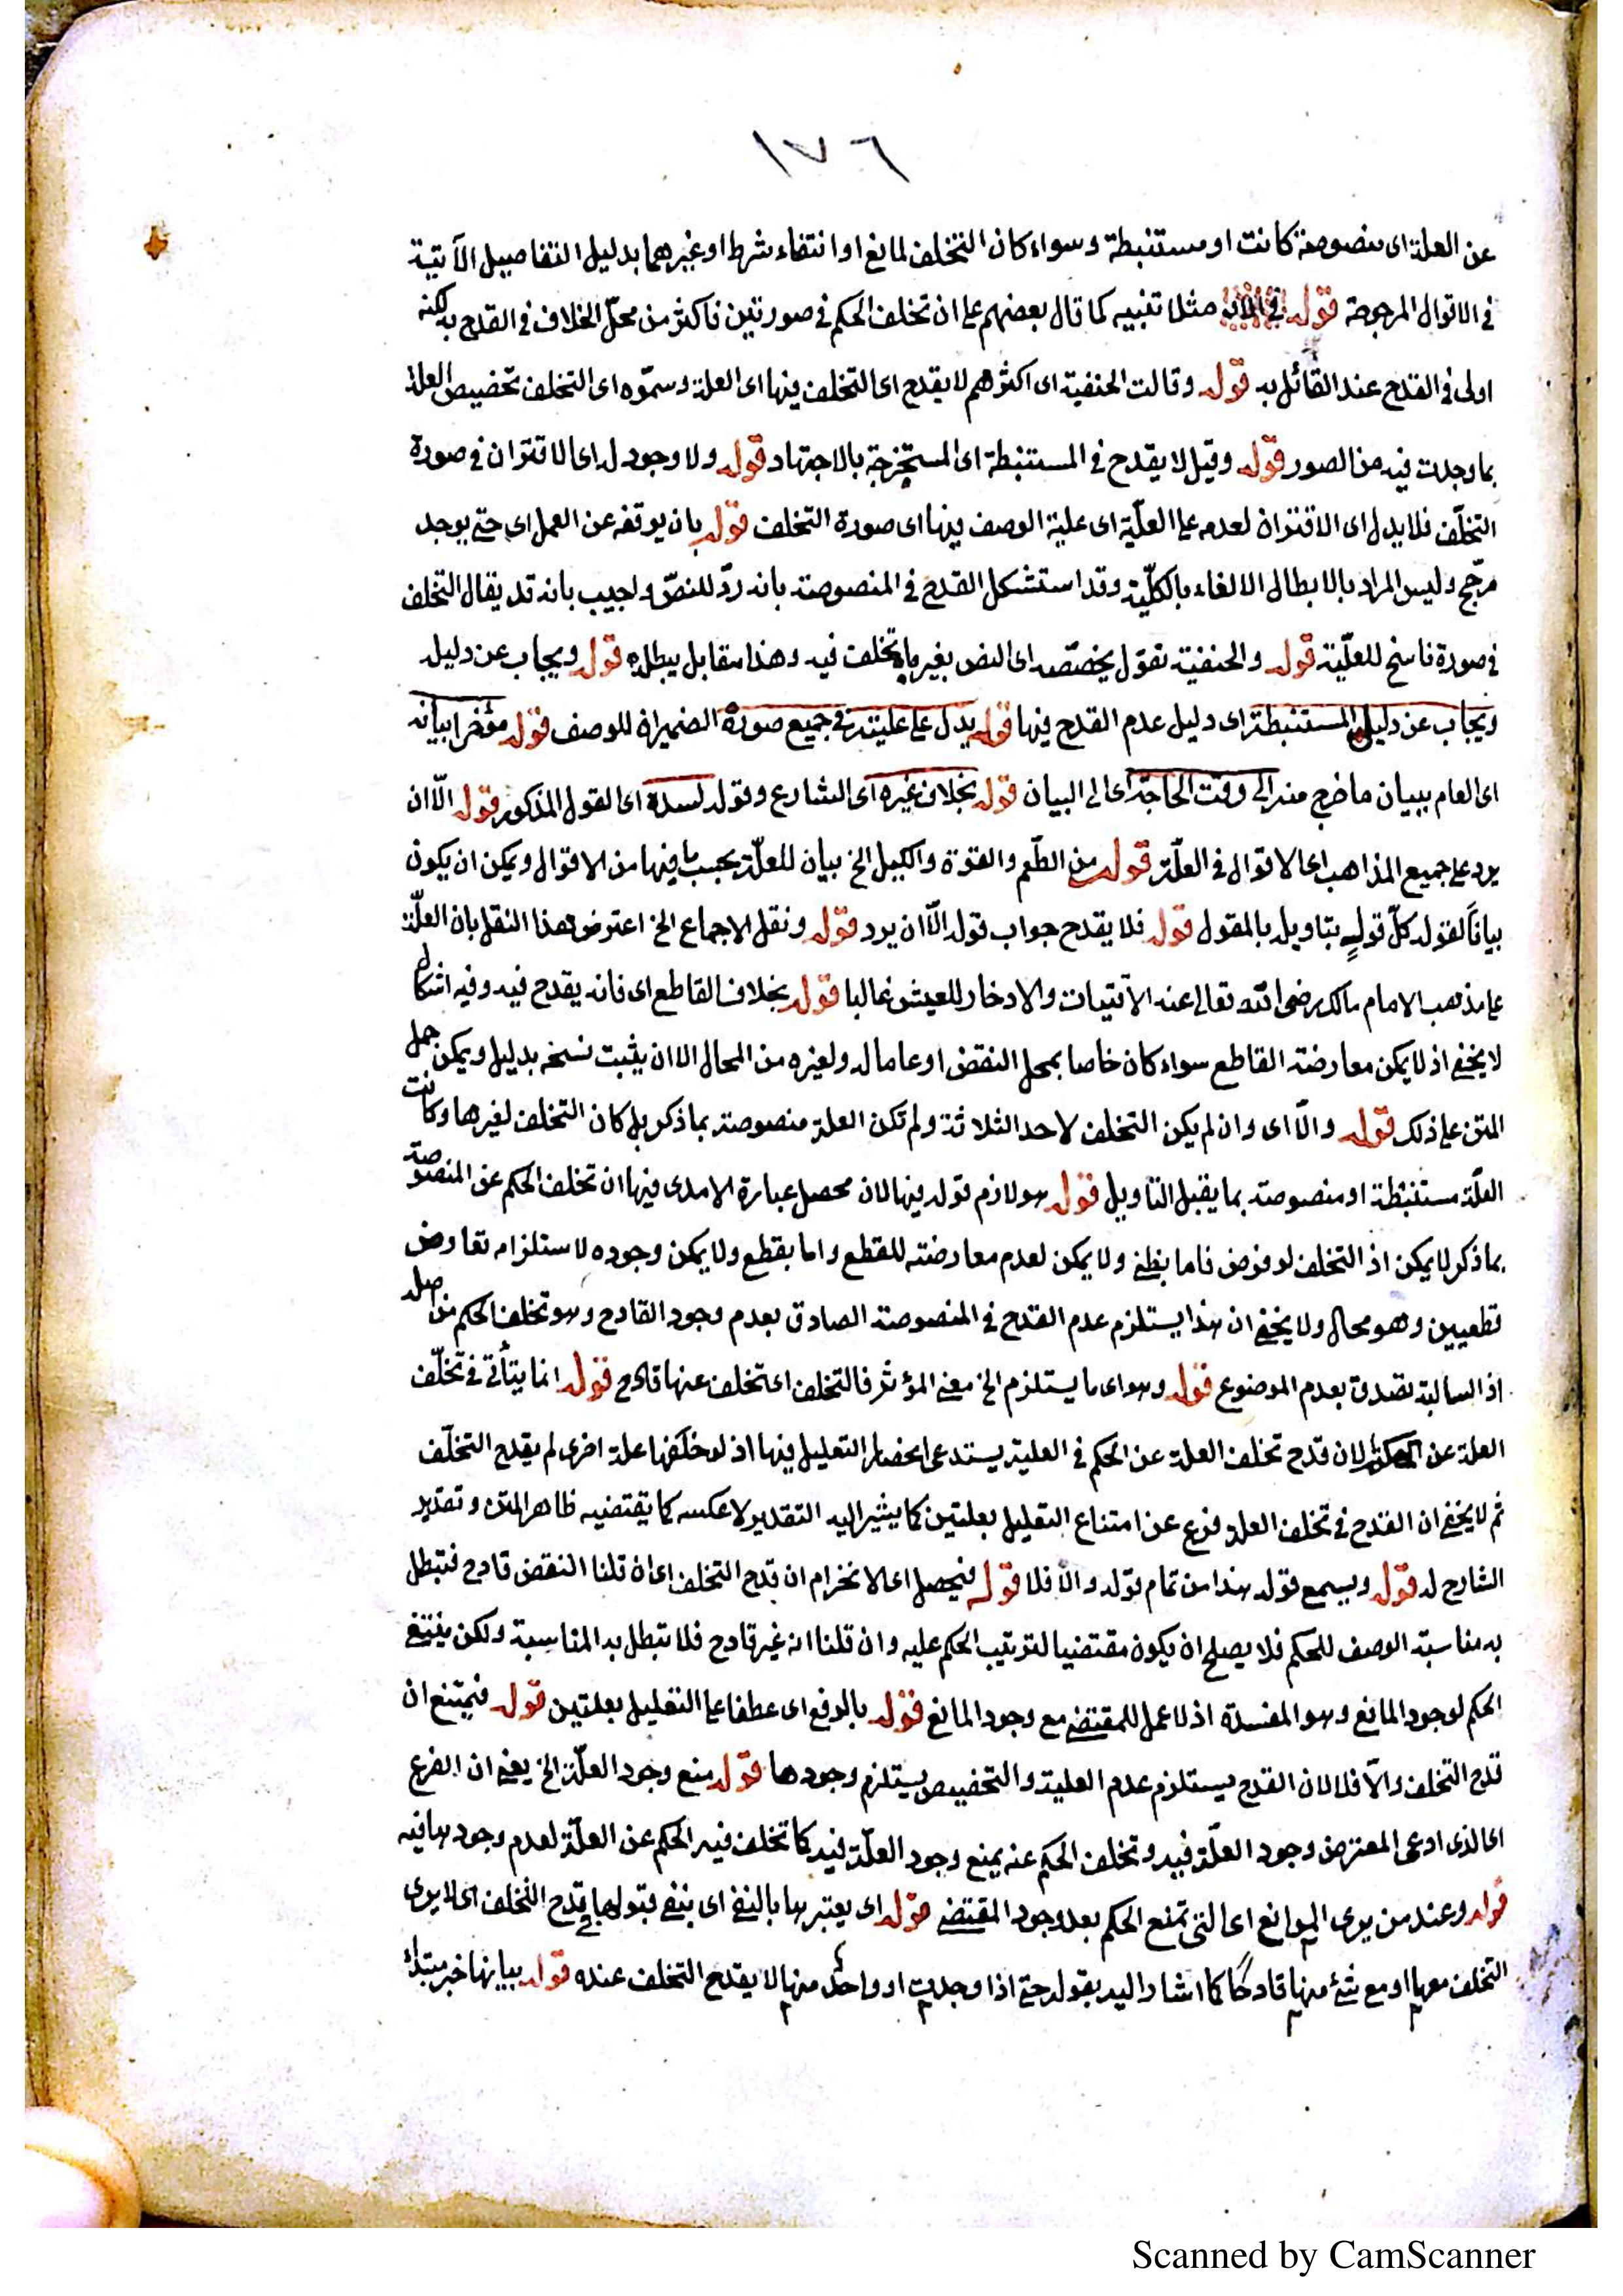 ١٧٦
عن العلة اى منصوصة كانت او مستنبطة وسواء كان التخلف لمانع او انتفاء شرط او غيرهما بدليل التفاصيل الآتية
فى الاقوال المرجوحة قوله فى مثلا تنبيه كما قال بعضهم على ان تخلف الحكم فى صورتين فاكثر من محل الخلاف فى القدح به لكنه
اولى فى القدح عند القائل به قوله وقالت الحنفية اى اكثرهم لا يقدح اى التخلف فيها اى العلة وسموه اى التخلف تخصيص العلة
بما وجدت فيه من الصور قوله وقيل لا يقدح فى المستنبطة اى المستخرجة بالاجتهاد قوله ولا وجود له اى الاقتران فى صورة
التخلّف فلا يدل اى الاقتران لعدمه على العلّية اى علية الوصف فيها اى صورة التخلف قوله بان يوقفه عن العمل اى حتى يوجد
مرجّح وليس المراد بالابطال الالغاء بالكلّية وقد استشكل القدح فى المنصوصة بانه ردّ للنصّ واجيب بانه قد يقال التخلف
فى صورة ناسخ للعلّية قوله والحنفية تقول يخصّصه اى النص بغير ما تخلف فيه وهذا مقابل يبطله قوله ويجاب عن دليله
ويجاب عن دليل المستنبطة اى دليل عدم القدح فيها قوله يدل على عليته فى جميع صوره الضميران للوصف قوله مؤخرا بيانه
اى العام ببيان ما خرج منه الى وقت الحاجة اى الى البيان قوله بخلاف غيره اى الشارع وقوله لسده اى القول المذكور قوله الّا ان
يرد على جميع المذاهب اى الاقوال فى العلّة قوله من الطّعم والقوة والكيل الخ بيان للعلّة بحسب ما فيها من الاقوال ويمكن ان يكون
بياناً لقوله كلّ قولٍ بتاويله بالمقول قوله فلا يقدح جواب قوله الّا ان يرد قوله ونقل الاجماع الخ اعترض هذا النقل بان العلّة
على مذهب الامام مالك رضى الله تعالى عنه الاقتيات والادخار للعيش غالبا قوله بخلاف القاطع اى فانه يقدح فيه وفيه اشكال
لا يخفى اذ لا يمكن معارضة القاطع سواء كان خاصا بمحل النقض او عاما له ولغيره من المحال الا ان يثبت نسخه بدليل ويمكن حمل
المتن على ذلك قوله والّا اى وان لم يكن التخلف لاحد الثلاثة ولم تكن العلة منصوصة بما ذكر بل كان التخلف لغيرها وكانت
العلّة مستنبطة او منصوصة بما يقبل التاويل قوله هو لازم قوله فيها لان محصل عبارة الامدى فيها ان تخلف الحكم عن المنصوصة
بما ذكر لا يمكن اذ التخلف لو فرض فاما بظنى ولا يمكن لعدم معارضته للقطع واما بقطع ولا يمكن وجوده لاستلزام تعارض
قطعيين وهو محال ولا يخفى ان هذا يستلزم عدم القدح فى المنصوصة الصادق بعدم وجود القادح وهو تخلف الحكم من اصله
اذ السالبة تصدق بعدم الموضوع قوله وهو اى ما يستلزم الخ معنى المؤثر فالتخلف اى تخلف عنها قادح قوله انما يتأتى فى تخلّف
العلة عن الحكم لان قدح تخلف العلة عن الحكم فى العلية يستدعى انحصار التعليل فيها اذ لو خلفها علة اخرى لم يقدح التخلّف
ثم لا يخفى ان القدح فى تخلف العلة فرع عن امتناع التعليل بعلتين كما يشير اليه التقدير لا عكسه كما يقتضيه ظاهر المتن وتقدير
الشارح له قوله ويسمع قوله هذا من تمام قوله والّا فلا قوله فيحصل اى الانخرام ان قدح التخلف اى ان قلنا النقض قادح فتبطل
به مناسبة الوصف للحكم فلا يصلح ان يكون مقتضيا لترتيب الحكم عليه وان قلنا انه غير قادح فلا تبطل به المناسبة ولكن ينتفى
الحكم لوجود المانع وهو المفسدة اذ لا عمل للمقتضى مع وجود المانع قوله بالرفع اى عطفا على التعليل بعلتين قوله فيمتنع ان
قدح التخلف والّا فلا لان القدح يستلزم عدم العلية والتخصيص يستلزم وجودها قوله منع وجود العلّة الخ يعنى ان الفرع
اى الذى ادعى المعترض وجود العلّة فيه وتخلف الحكم عنه يمنع وجود العلّة فيه كما تخلف فيه الحكم عن العلّة لعدم وجودها فيه
قوله وعند من يرى الموانع اى التى تمنع الحكم بعد وجود المقتضى قوله اى يعتبرها بالنفى اى بنفى قدح التخلف اى لا يرى
التخلف معها او مع شئ منها قادحًا كما اشار اليه بقوله حتى اذا وجدت او واحد منها لا يقدح التخلف عنده قوله بيانها خبر مبتدأ
Scanned by CamScanner